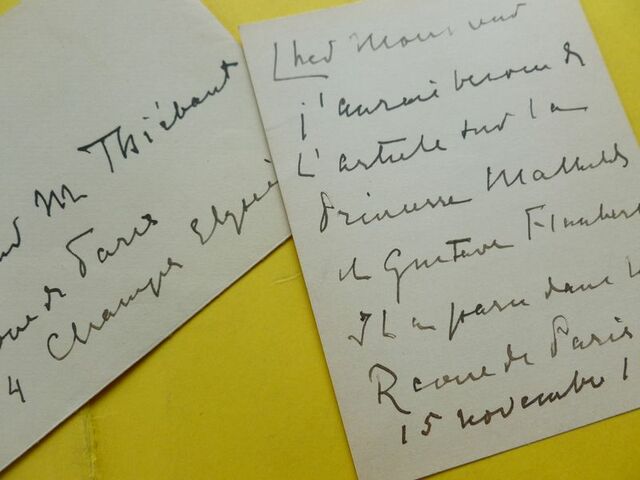 M Thiébaut
Revue de Paris
4 Champs Elysée
Cher Monsieur
j'aurais besoin de
L'article sur la
Princesse Mathilde
et Gustave Flaubert
Il a paru dans la
Revue de Paris
15 novembre 1